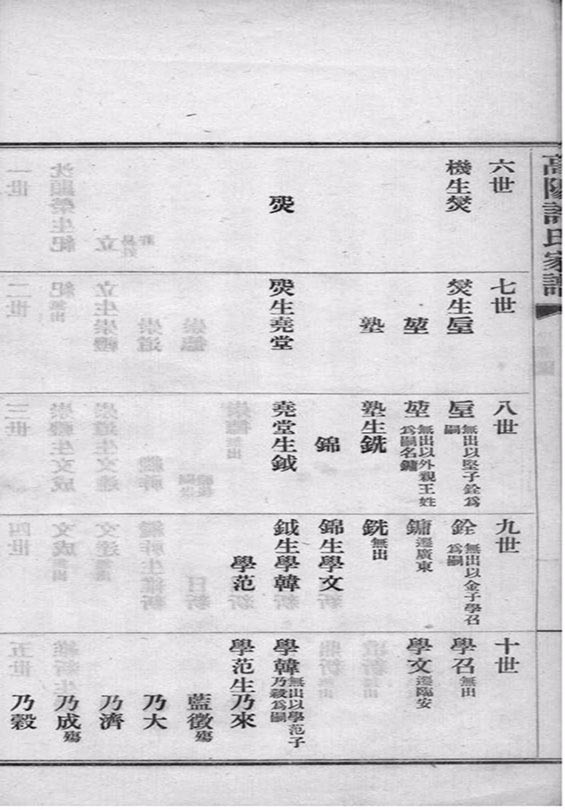 高陽許氏家譜
六世
機生
七世
生垕
堃
塾
生堯堂
八世
垕 無出以堅子銓為嗣
堃 無出以外親王姓為嗣名鏞
塾生銑
錦
堯堂生鉞
九世
銓 無出以金子學召為嗣
鏞 遷廣東
銑 無出
錦生學文
鉞生學韓
學范
十世
學召 無出
學文 遷臨安
學韓 無出以學范子乃穀為嗣
學范生乃來
藍徵 殤
乃大
乃濟
乃成 殤
乃穀